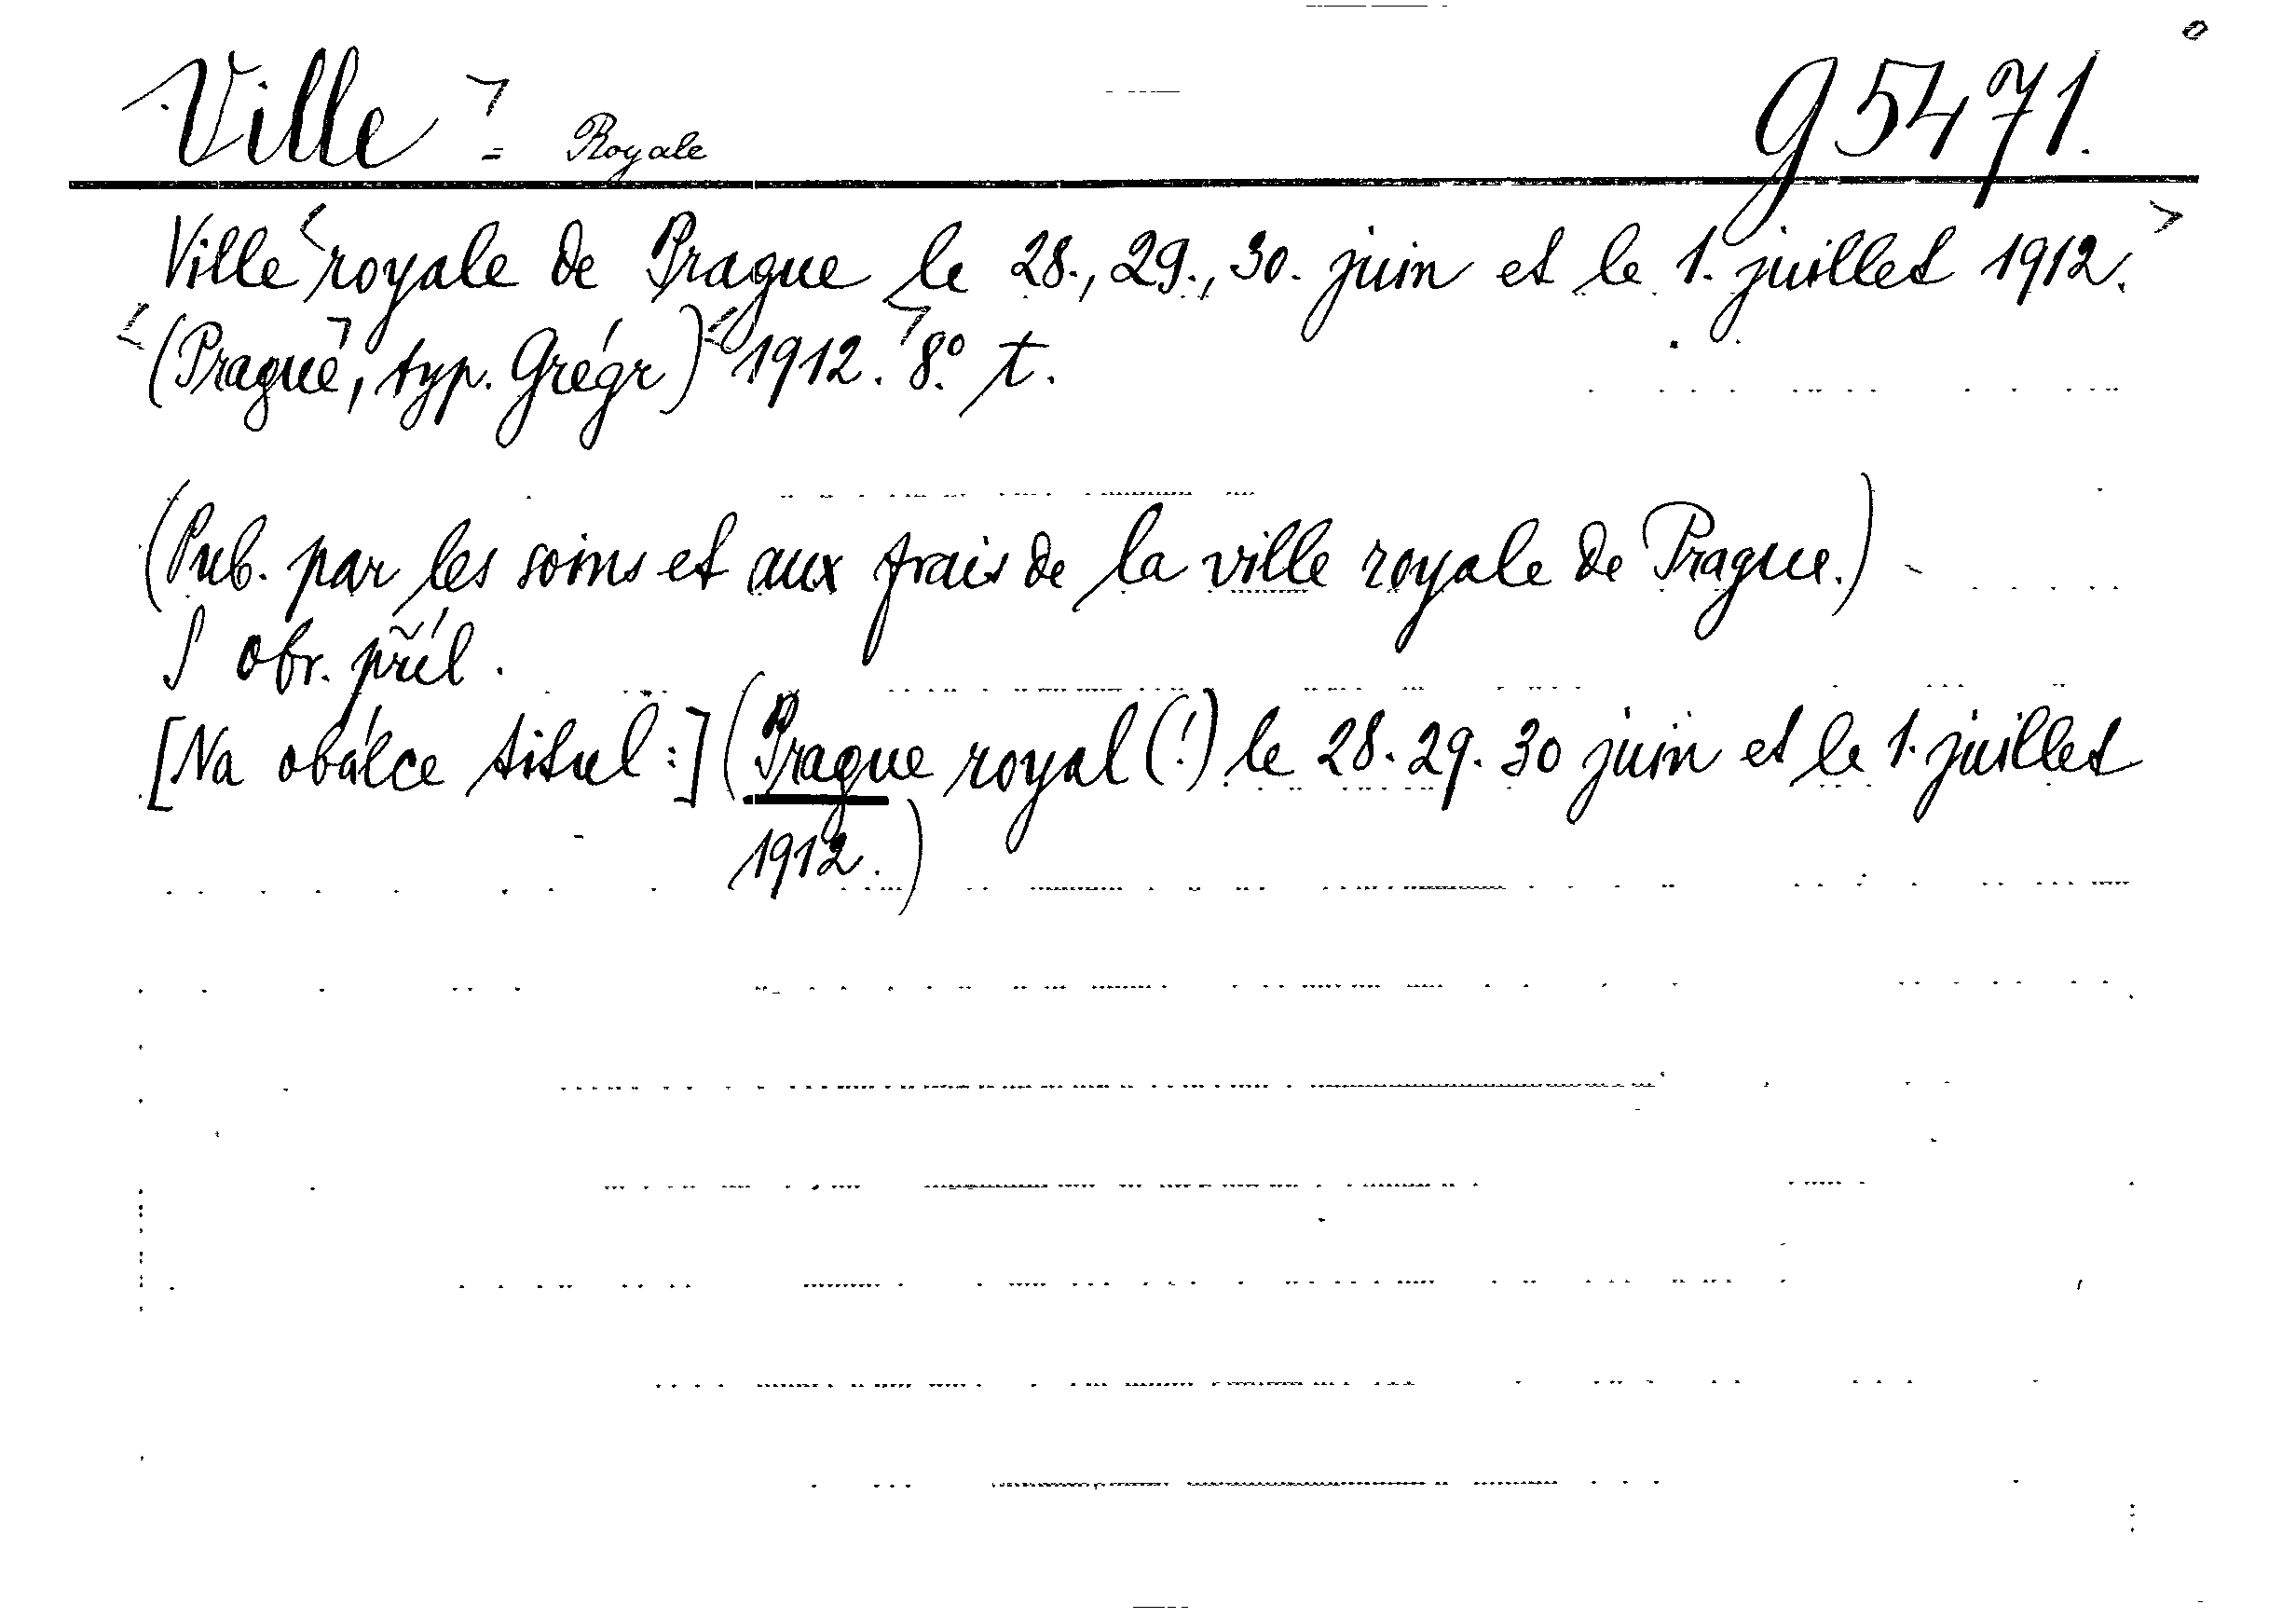 Ville = Royale g 5471.
Ville royale de Prague le 28., 29., 30. juin et le 1. juillet 1912.
(Prague, typ. Grégr) 1912. 8° t.
(Pub. par les soins et aux frais de la ville royale de Prague.)
S obr. příl.
[Na obálce titul:] (Prague royal (!) le 28. 29. 30 juin et le 1. juillet
1912.)